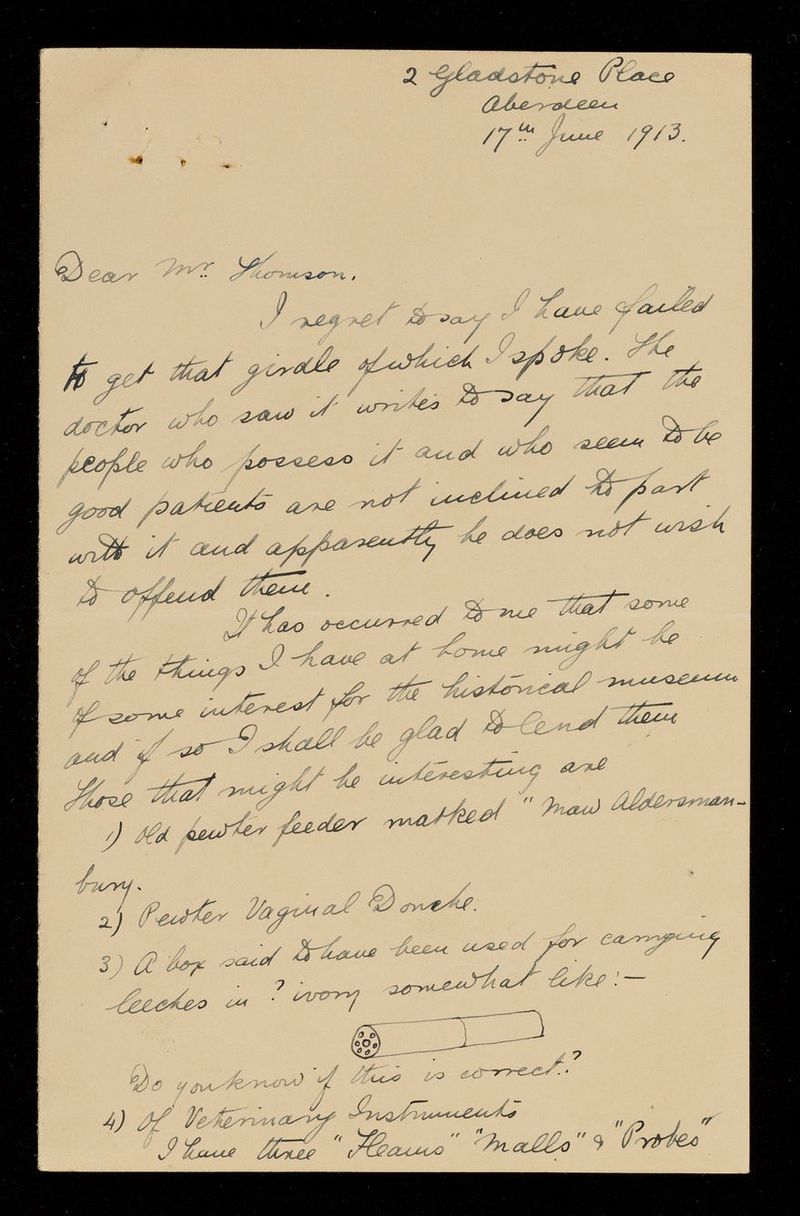 2 Gladstone Place
Aberdeen
17th June 1913.
Dear Mr. Thomson.
I regret to say I have failed
to get that girdle of which I spoke. The
doctor who saw it writes to say that the
people who possess it and who seem to be
good patients are not inclined to part
with it and apparently he does not wish
to offend them.
It has occurred to me that some
of the things I have at home might be
of some interest for the historical museum
and if so I shall be glad to lend them
Those that might be interesting are
1) Old pewter feeder marked "Maw Aldersman-
bury.
2) Pewter Vaginal Douche.
3) A box said to have been used for carrying
leeches in ? ivory somewhat like:-
Do you know if this is correct.?
4) Of Veterinary Instruments
I have three "Fleams" "Malls" & "Probes"